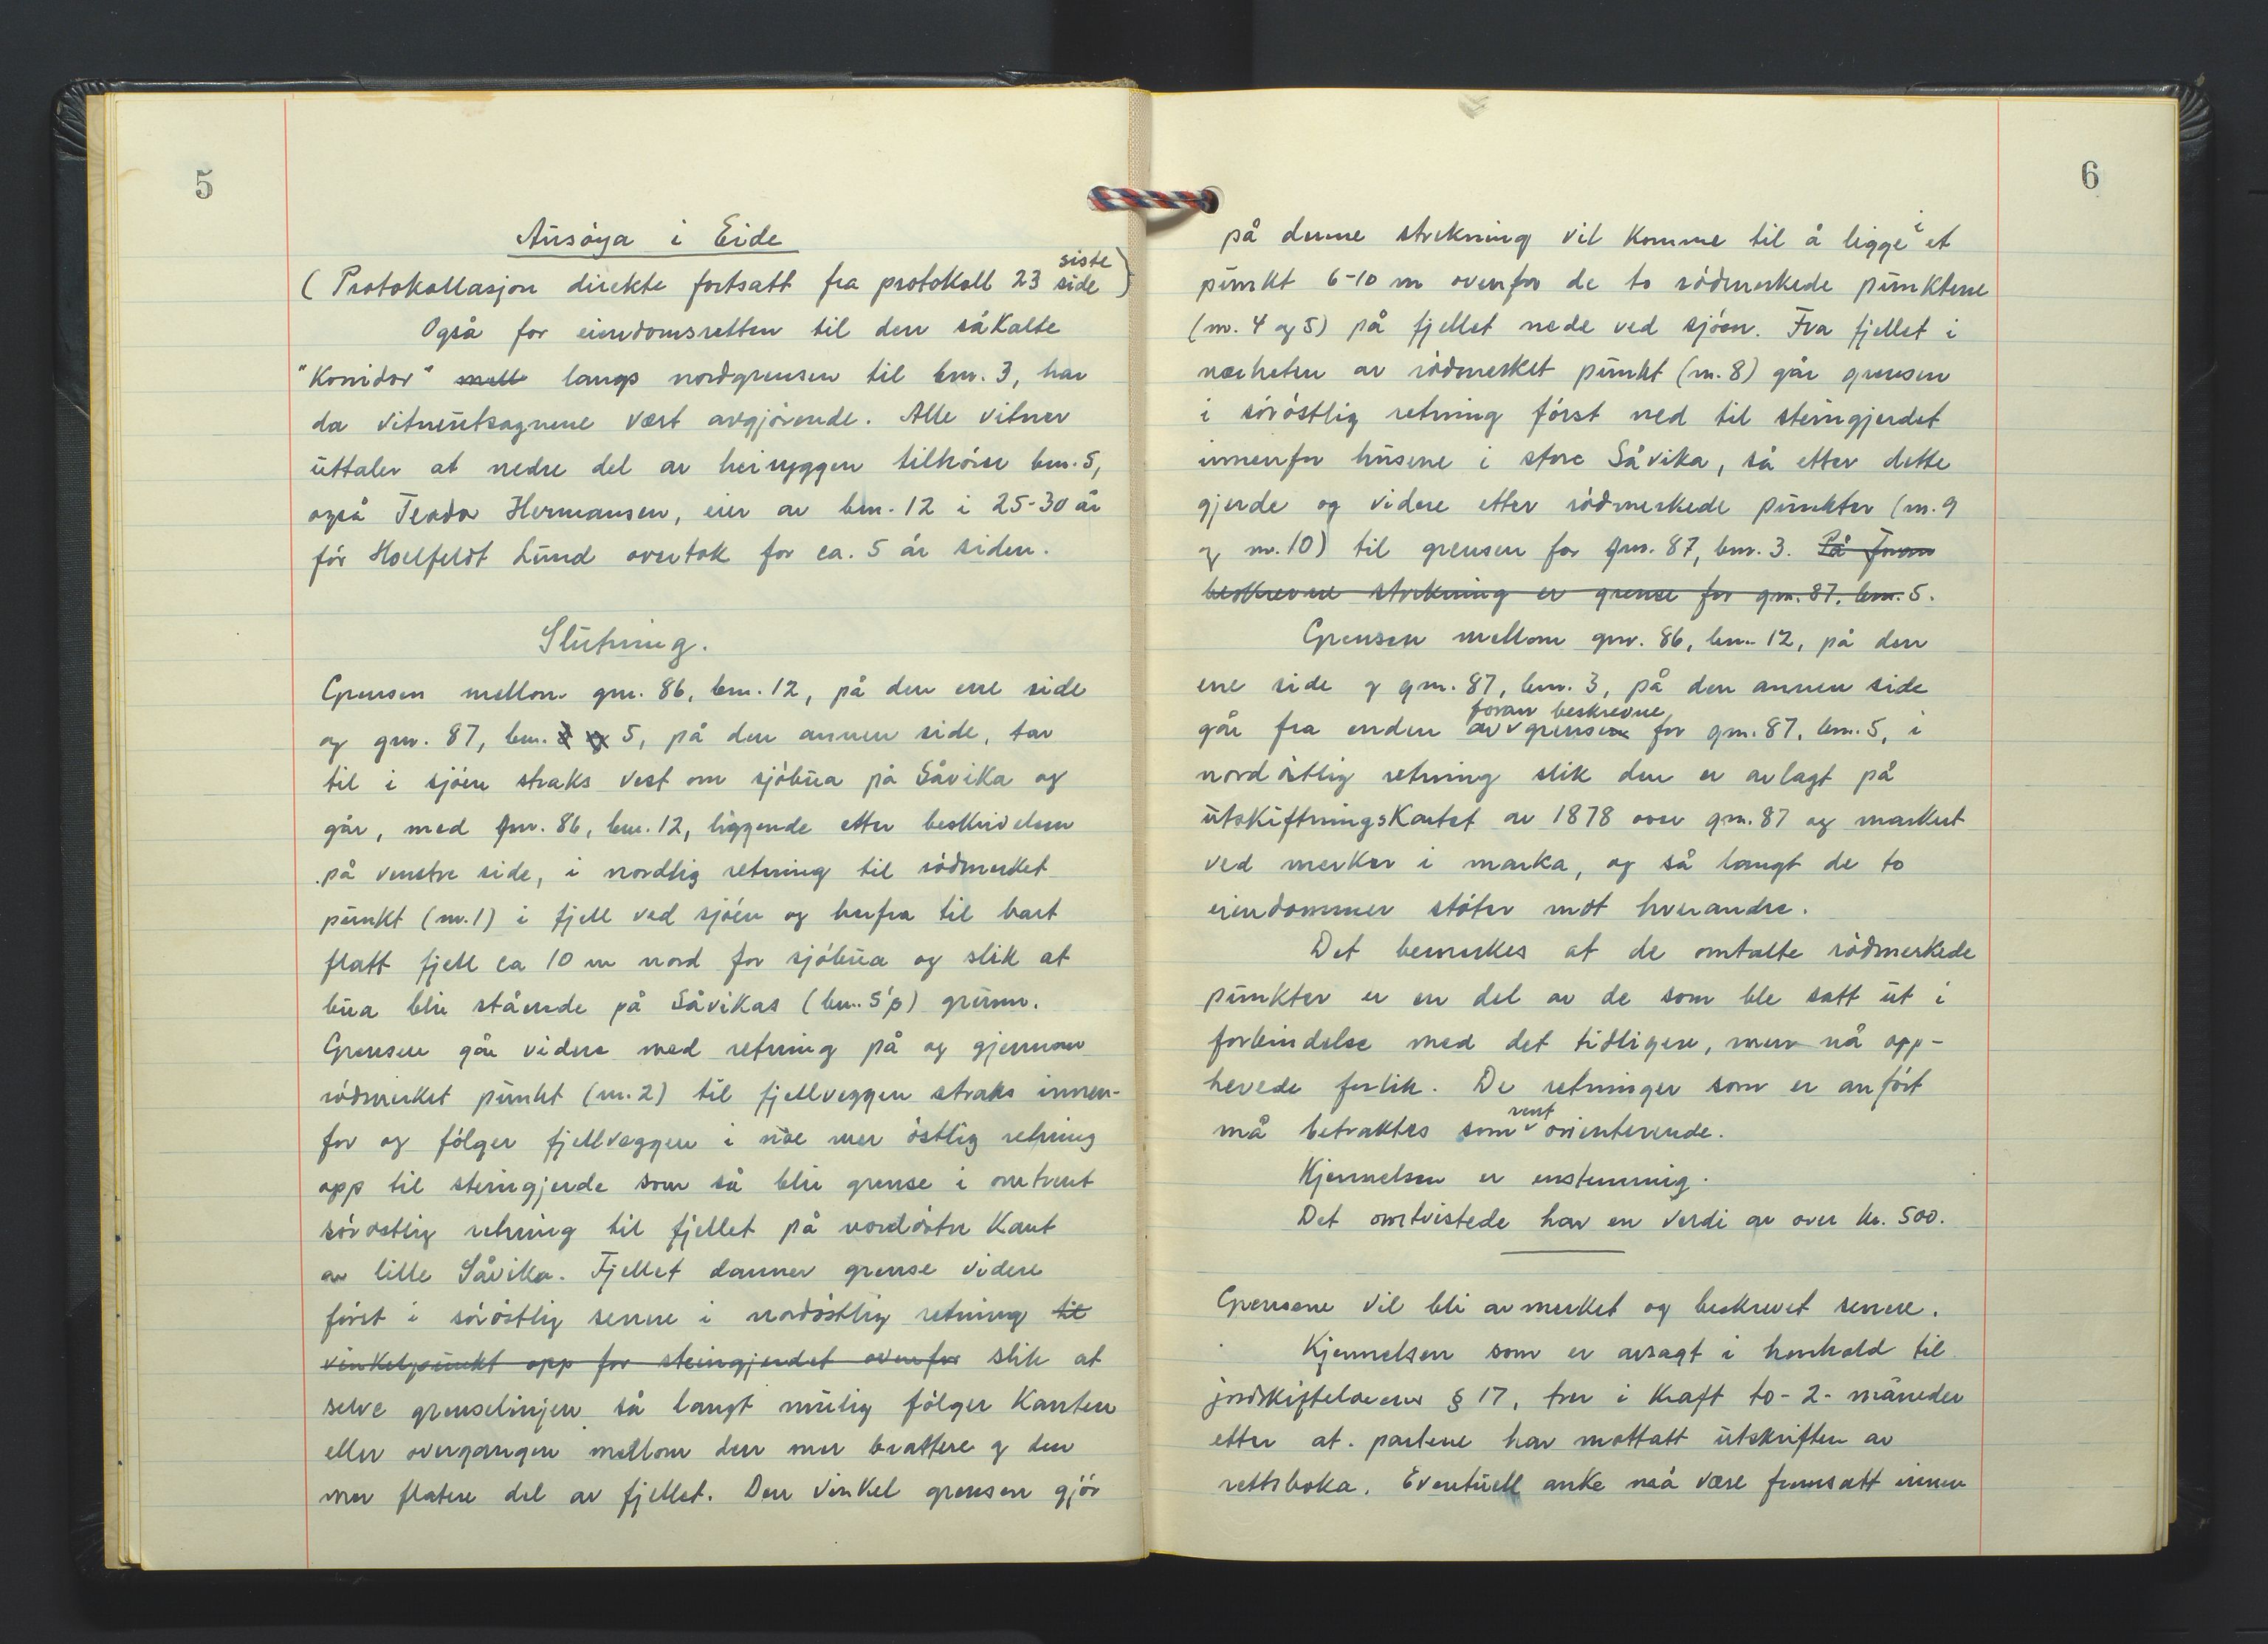 5
Ausøya i Eide
siste
( Protokollasjon direkte fortsatt fra protokoll 23 side )
Også for eiendomsretten til den såkalte
"Korridor" mell langs nordgrensen til bnr. 3, har
da vitneutsagnene vært avgjørende. Alle vitner
uttaler at nedre del av heiryggen tilhører bnr. 5,
også Teodor Hermansen, eier av bnr. 12 i 25-30 år
før Hoelfeldt Lund overtok for ca. 5 år siden.
Slutning.
Grensen mellom gnr. 86, bnr. 12, på den ene side
og gnr. 87, bnr. 3 og 5, på den annen side, tar
til i sjøen straks vest om sjøbua på Såvika og
går, med gnr. 86, bnr. 12, liggende etter beskrivelsen
på venstre side, i nordlig retning til rødmerket
punkt (nr. 1) i fjell ved sjøen og herfra til bart
flatt fjell ca 10 m nord for sjøbua og slik at
bua blir stående på Såvikas (bnr. 5's) grunn.
Grensen går videre med retning på og gjennom
rødmerket punkt (nr. 2) til fjellveggen straks innen-
for og følger fjellveggen i noe mer østlig retning
opp til steingjerde som så blir grense i omtrent
sørøstlig retning til fjellet på nordøstre kant
av lille Såvika. Fjellet danner grense videre
først i sørøstlig senere i nordøstlig retning til
vinkelpunkt opp for steingjerdet ovenfor slik at
selve grenselinjen så langt mulig følger kanten
eller overgangen mellom den mer brattere og den
mer flatere del av fjellet. Den vinkel grensen gjør
6
på denne strekning vil komme til å ligge i et
punkt 6-10 m ovenfor de to rødmerkede punktene
(nr. 4 og 5) på fjellet nede ved sjøen. Fra fjellet i
nærheten av rødmerket punkt (nr. 8) går grensen
i sørøstlig retning først ned til steingjerdet
innenfor husene i store Såvika, så etter dette
gjerde og videre etter rødmerkede punkter (nr. 9
og nr. 10) til grensen for gnr. 87, bnr. 3. På foran
beskrevne strekning er grense for gnr. 87, bnr. 5.
Grensen mellom gnr. 86, bnr. 12, på den
ene side og gnr. 87, bnr. 3, på den annen side
foran beskrevne
går fra enden av grensen for gnr. 87, bnr. 5, i
nordøstlig retning slik den er avlagt på
utskiftningskartet av 1878 over gnr. 87 og markert
ved merker i marka, og så langt de to
eiendommer støter mot hverandre.
Det bemerkes at de omtalte rødmerkede
punkter er en del av de som ble satt ut i
forbindelse med det tidligere, men nå opp-
hevede forlik. De retninger som er anført
rent
må betraktes som orienterende.
Kjennelsen er enstemmig.
Det omtvistede har en verdi av over kr. 500.
Grensene vil bli avmerket og beskrevet senere.
Kjennelsen som er avsagt i henhold til
jordskiftelovens § 17, trer i kraft to - 2 - måneder
etter at partene har mottatt utskriften av
rettsboka. Eventuell anke må være fremsatt innen